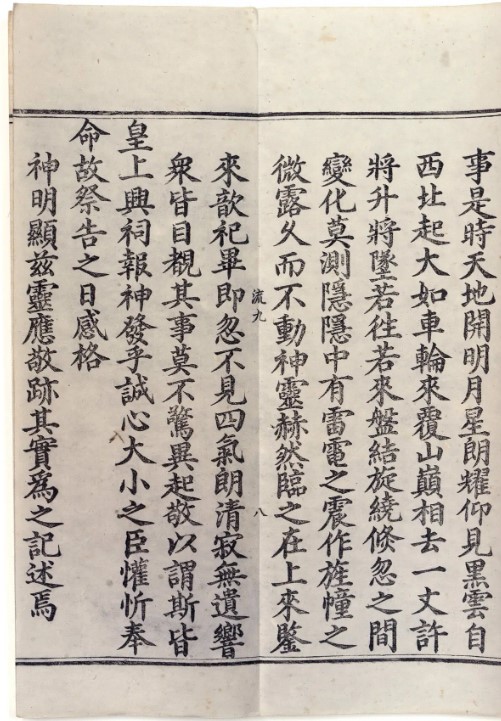 事是時天地開明月星朗耀仰見黑雲自
西北起大如車輪來覆山巔相去一丈許
將升將墜若徃若來盤結旋繞倏忽之間
變化莫測隱隱中有雷電之震作旌幢之
微露久而不動神靈赫然臨之在上來鑒
流九
八
來歆祀畢即忽不見四氣朗清寂無遺響
衆皆目覩其事莫不驚異起敬以謂斯皆
皇上興祠報神發乎誠心大小之臣懽忻奉
命故祭告之日感格
神明顯兹靈應敬跡其實爲之記述焉